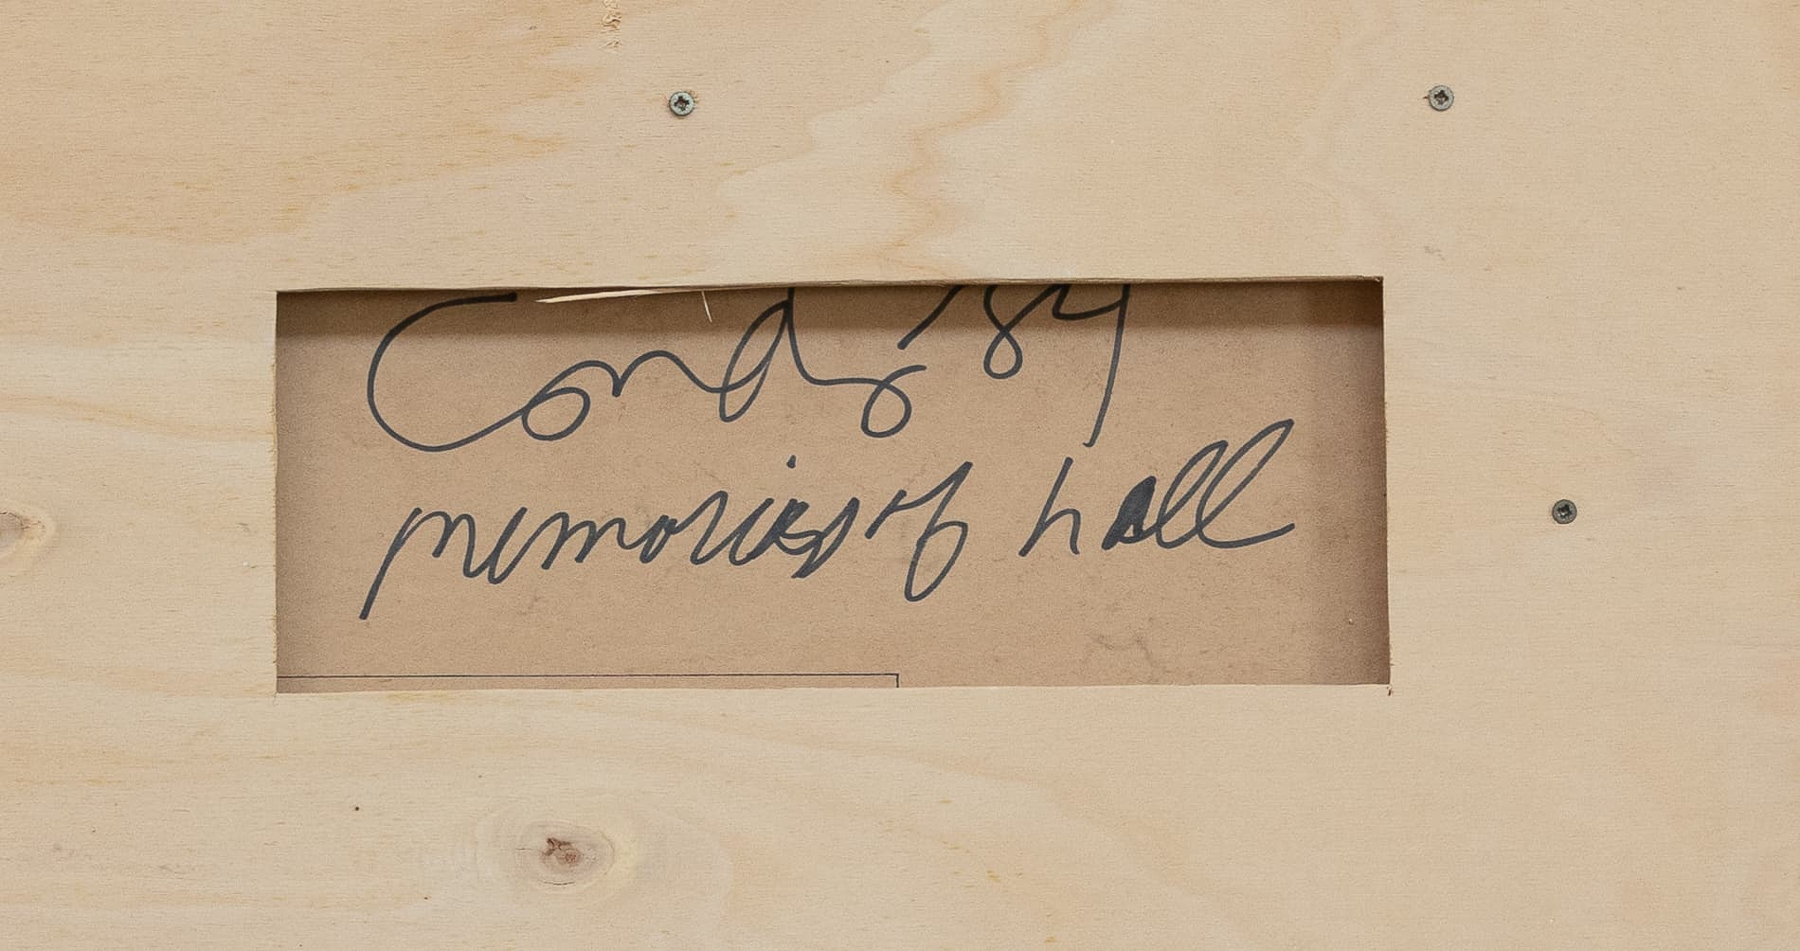 Condo '84
memories of